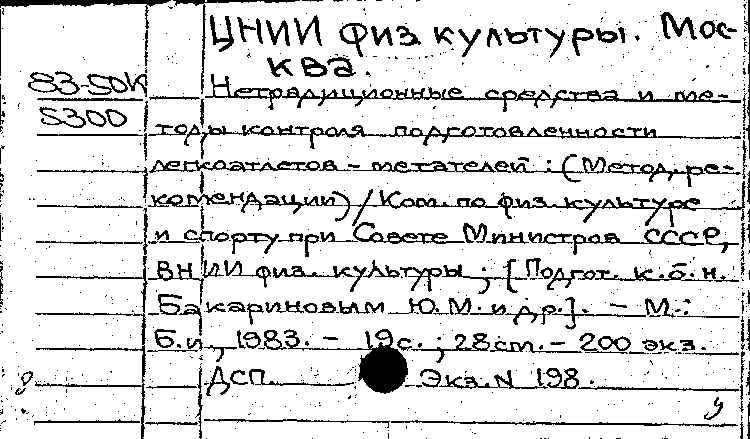 ЦНИИ физ культуры. Мос-
ква.
83-50К
Нетрадиционные средства и ме-
5300
тоды контроля подготовленности
легкоатлетов - метателей : (Метод. ре-
комендации) / Ком. по физ. культуре
и спорту при Совете Министров СССР,
ВНИИ физ. культуры ; [Подгот. к.б.н.
Бакариновым Ю.М. и др.]. - М.:
Б.и., 1983. - 19с. ; 28см. - 200 экз.
ДСП. Экз. N 198.
у